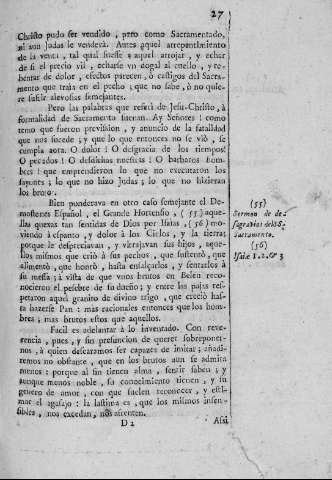 27
Christo pudo ser vendido, pero como Sacramentado,
ni aun Judas le venderá. Antes aquel arrepentimiento
de la venta, tal qual fuesse: aquel arrojar, y echar
de sì el precio vil, echarse un dogal al cuello, y re-
bentar de dolor, efectos parecen, ò castigos del Sacra-
mento que traìa en el pecho; que no sabe, ò no quie-
re sufrir alevosias semejantes.
Pero las palabras que referì de Jesu-Christo, à
formalidad de Sacramento fueron. Ay Señores! como
temo que fueron prevision, y anuncio de la fatalidad
que nos sucede; y que lo que entonces no se viò, se
cumpla aora. O dolor! O desgracia de los tiempos!
O pecados! O desdichas nuestras! O barbaros hom-
bres! que emprendieron lo que no executaron los
sayones; lo que no hizo Judas; lo que no hicieran
los brutos.
Bien ponderava en otro caso semejante el De-
mosthenes Español, el Grande Hortensio, (55) aque-
llas quexas tan sentidas de Dios por Isaìas, (56) mo-
viendo à espanto, y dolor à los Cielos, y la tierra;
porque le despreciavan, y ultrajavan sus hijos, aque-
llos mismos que criò à sus pechos, que sustentò, que
alimentò, que honrò, hasta ensalçarlos, y sentarlos à
su mesa; à vista de que unos brutos en Belèn reco-
nocieron el pesebre de su dueño; y entre las pajas res-
petaron aquel granito de divino trigo, que creciò has-
ta hazerse Pan: mas racionales entonces que los hom-
bres; mas brutos estos que aquellos.
Facil es adelantar à lo inventado. Con reve-
rencia, pues, y sin presuncion de querer sobreponer-
nos, à quien desearamos ser capazes de imitar; añadi-
remos no obstante, que en los brutos aun se admira
menos: porque al fin tienen alma, sentir saben; y
aunque menos noble, su conocimiento tienen, y su
genero de amor, con que suelen reconocer, y esti-
mar el agasajo: la lastima es, que los mismos insen-
sibles, nos excedan, nos afrenten.
D 2 Assi
(55)
Sermon de de-
sagravios del SS.
Sacramento.
(56)
Isai. 1. 2. & 3